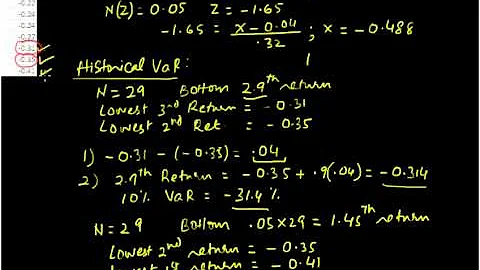 N(Z) = 0.05 Z = -1.65
-1.65 = x - 0.04 / .32 ; x = -0.488
Historical VaR:
N = 29 Bottom 2.9th return
Lowest 3rd Return = -0.31
Lowest 2nd Ret. = -0.35
1) -0.31 - (-0.35) = .04
2) 2.9th Return = -0.35 + .9(.04) = -0.314
10% VaR = -31.4%
N = 29 Bottom .05 x 29 = 1.45th return
Lowest 2nd return = -0.35
Lowest 1st return = -0.41